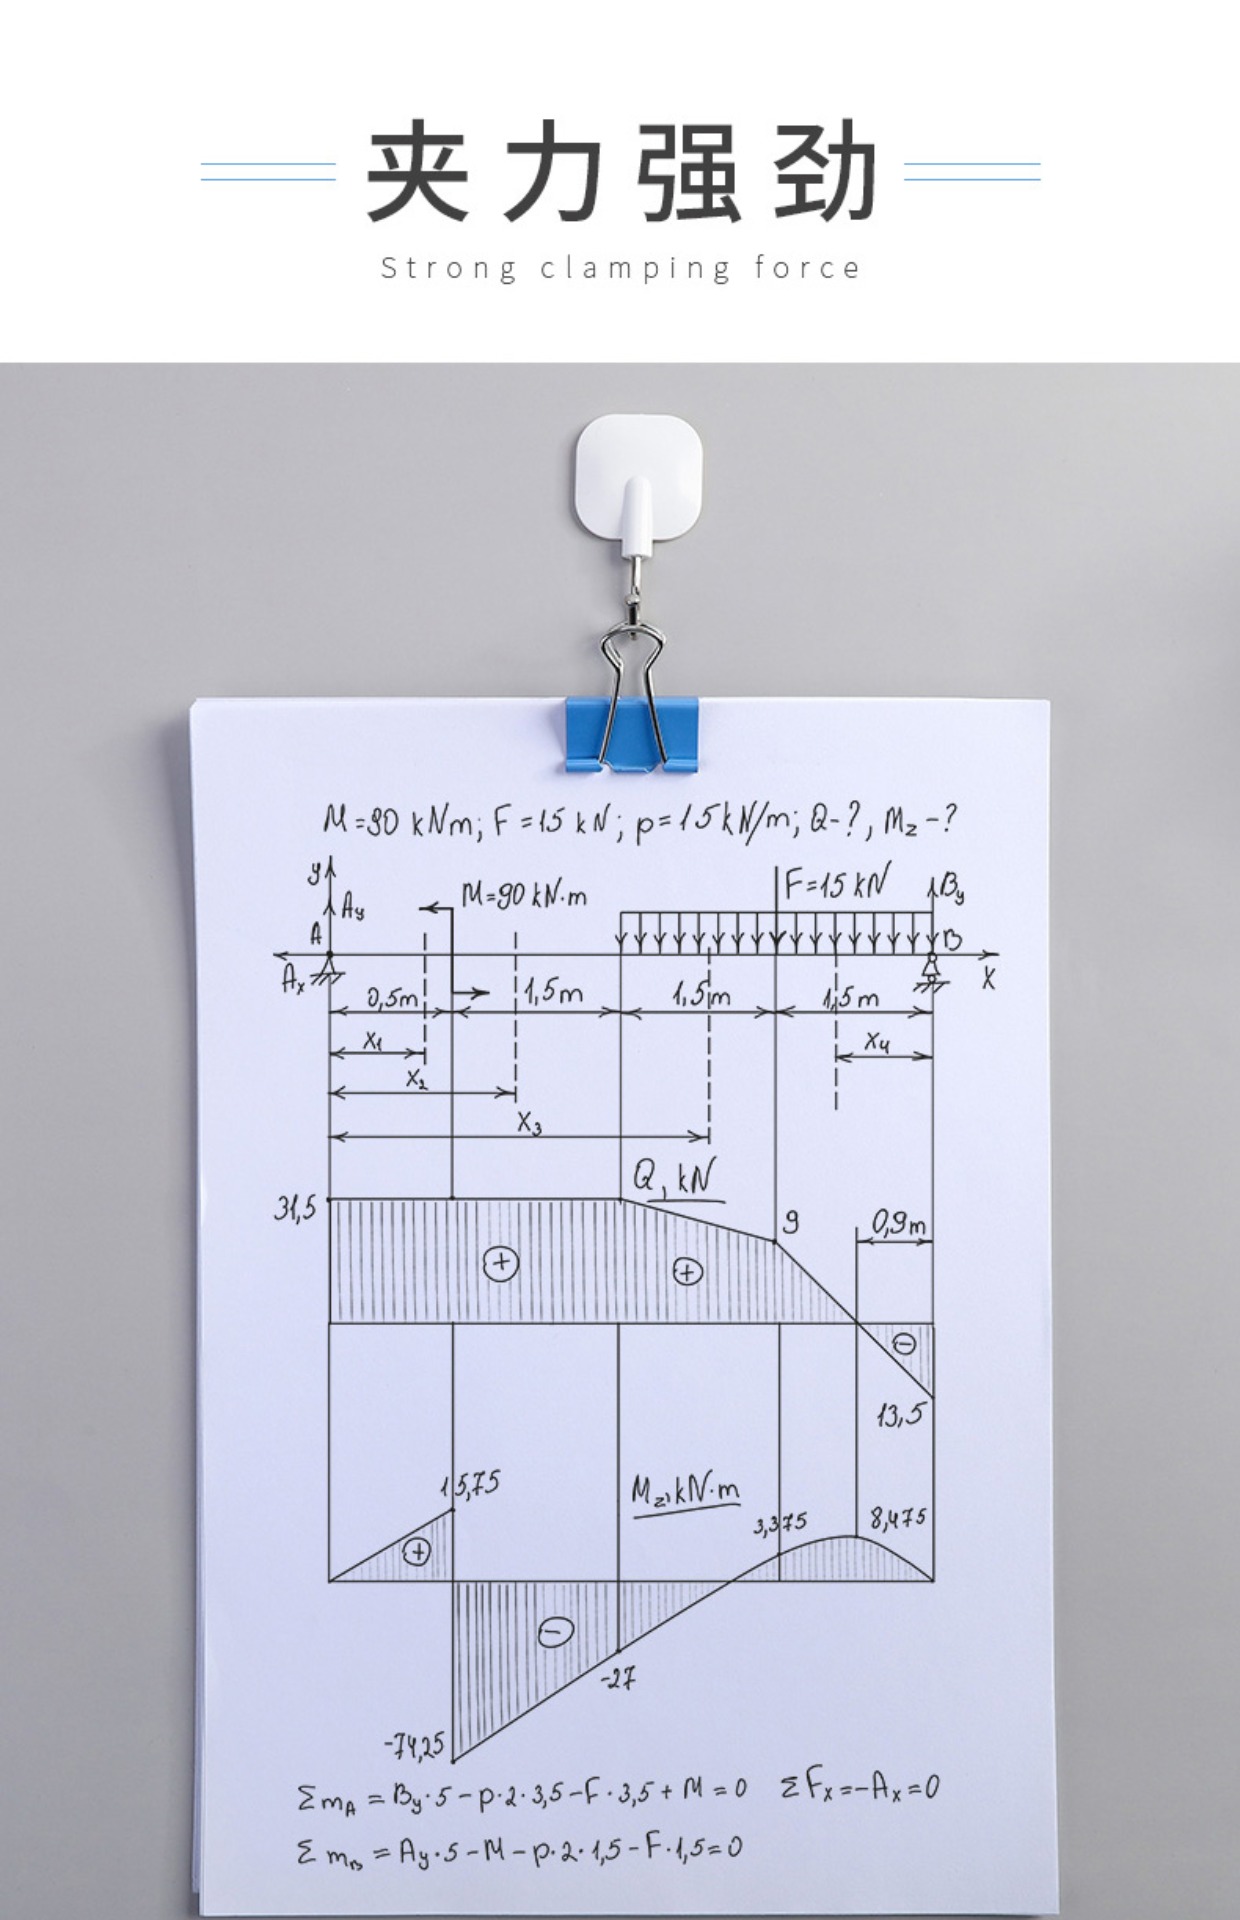 夹力强劲
Strong clamping force
M=90 kNm; F=15 kN; p=15kN/m; Q-?, Mz-?
y
Ay
A
Ax
M=90 kN·m
F=15 kN
By
B
X
0,5m
1,5m
1,5m
1,5m
X1
X4
X2
X3
Q, kN
31,5
9
0,9m
+
+
−
13,5
15,75
Mz, kN·m
3,375
8,475
+
−
-27
-74,25
ΣmA = By·5 - p·2·3,5-F·3,5 + M = 0 ΣFx=-Ax=0
ΣmB = Ay·5 - M - p·2·1,5 - F·1,5=0